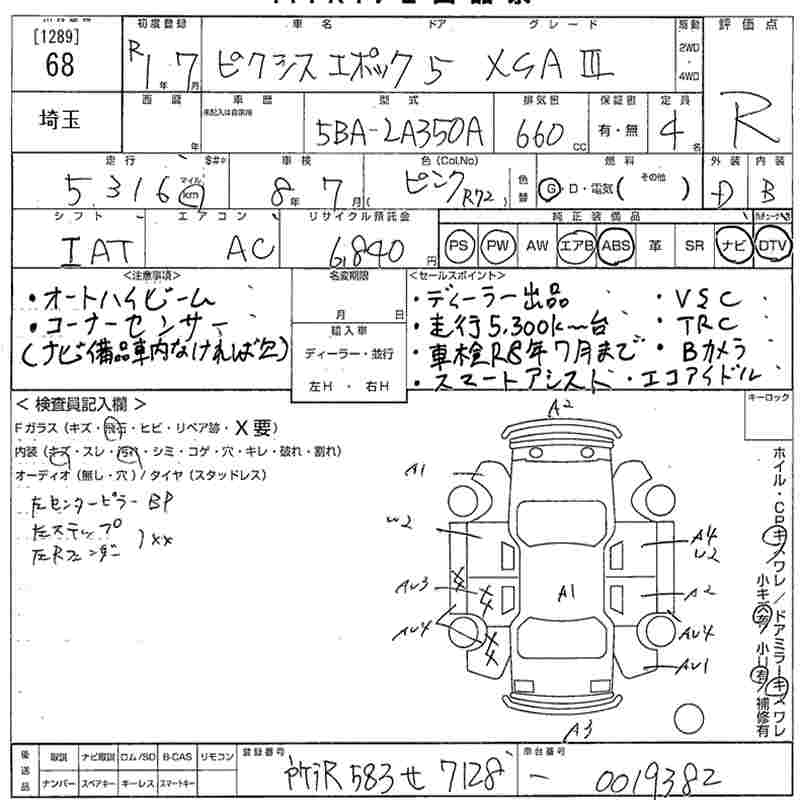 [1289]
68
初度登録
車名
ドア
グレード
駆動
評価点
R1年7月
ピクシス エポック 5
XGA III
2WD・4WD
R
埼玉
西暦
年
車歴
未記入は自家用
型式
5BA-LA350A
排気量
660 CC
保証書
有・無
定員
4名
走行
5,316
マイル
km
車検
8年7月
色(Col.No)
ピンク R72
色替
燃料
G・D・電気(その他)
外装
D
内装
B
シフト
IAT
エアコン
AC
リサイクル預託金
6,840円
純正装備品
PS PW AW エアB ABS 革 SR ナビ DTV
<注意事項>
・オートハイビーム
・コーナーセンサー
(ナビ備品車内なければ欠)
名変期限
月 日
輸入車
ディーラー・並行
左H・右H
<セールスポイント>
・ディーラー出品 ・VSC
・走行5,300km台 ・TRC
・車検R8年7月まで ・Bカメラ
・スマートアシスト ・エコアイドル
<検査員記入欄>
Fガラス(キズ・飛石・ヒビ・リペア跡・X要)
内装(キズ・スレ・汚れ・シミ・コゲ・穴・キレ・破れ・割れ)
オーディオ(無し・穴)/タイヤ(スタッドレス)
左センターピラー BP
左ステップ
左Rフェンダー
)XX
キーロック
A2
A1
W2
A4
W2
AU3
A1
A2
AU4
AU4
AU1
A3
ホイル・CPキズワレ/ドアミラーキズワレ
小キズ有/小U有/補修有
後送品
取説 ナビ取説 ロム/SD B-CAS リモコン
ナンバー スペアキー キーレス スマートキー
登録番号
583 せ 7128
車台番号
- 0019382